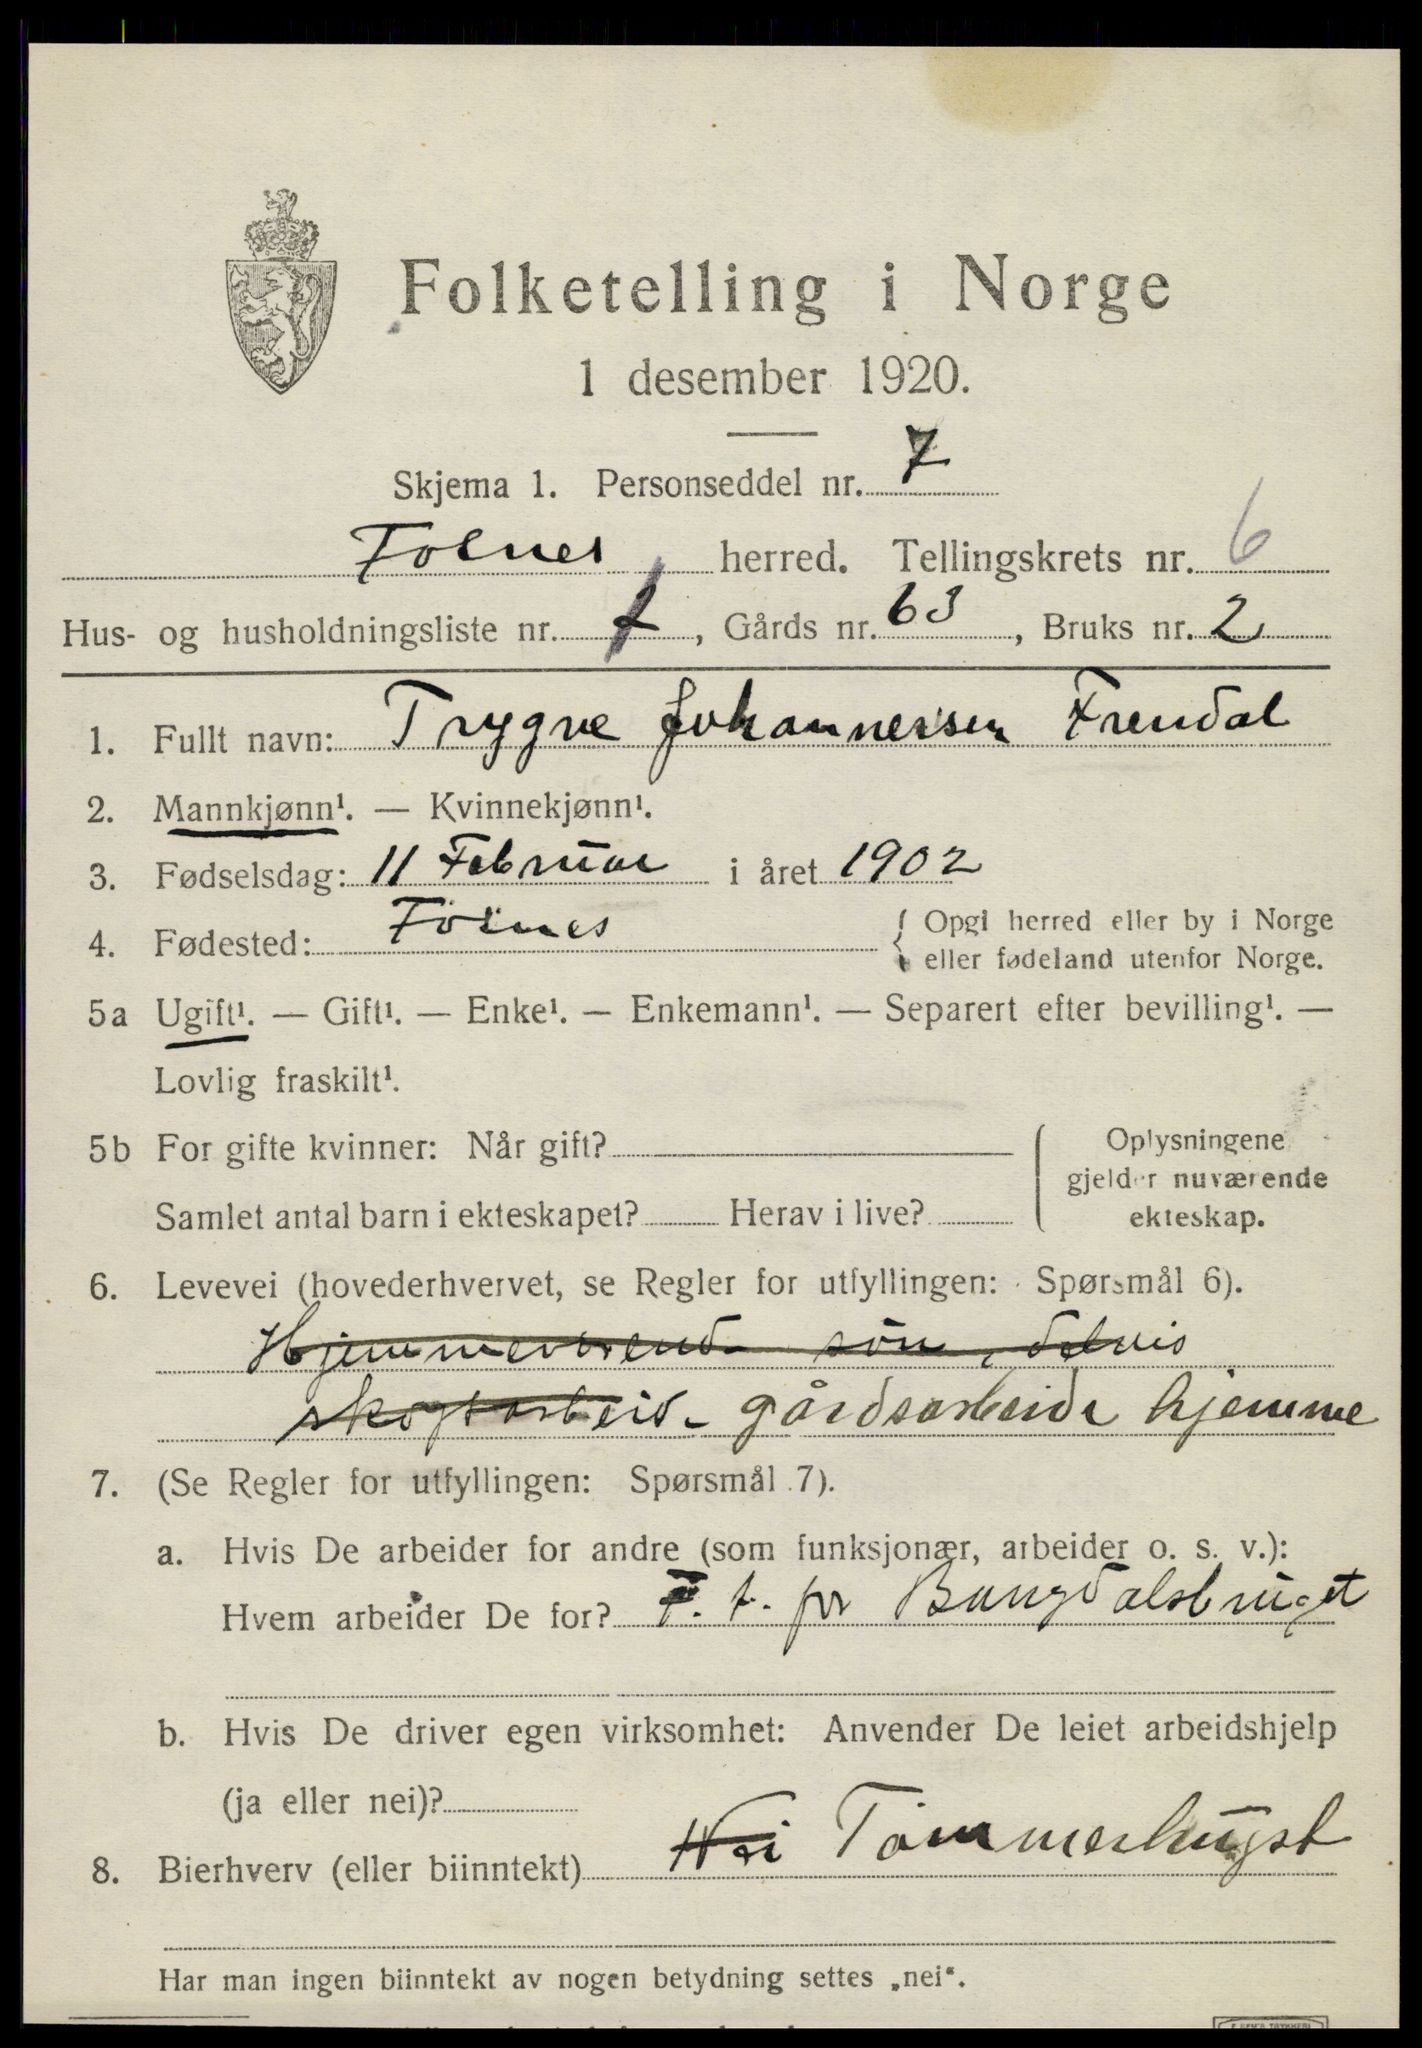 Folketelling i Norge
1 desember 1920.
Skjema 1. Personseddel nr. 7
Fosnes herred. Tellingskrets nr. 6
Hus- og husholdningsliste nr. , Gårds nr. 63, Bruks nr. 2
1. Fullt navn: Trygve Johannessen Frendal
2. Mannkjønn¹. — Kvinnekjønn¹.
3. Fødselsdag: 11 Februar i året 1902
4. Fødested: Fosnes { Opgi herred eller by i Norge
eller fødeland utenfor Norge.
5a Ugift¹. — Gift¹. — Enke¹. — Enkemann¹. — Separert efter bevilling¹. —
Lovlig fraskilt¹.
5b For gifte kvinner: Når gift? Oplysningene
gjelder nuværende
Samlet antal barn i ekteskapet? Herav i live? ekteskap.
6. Levevei (hovederhvervet, se Regler for utfyllingen: Spørsmål 6).
Hjemmeværend søn, delvis
skogsarbeid. gårdsarbeide hjemme
7. (Se Regler for utfyllingen: Spørsmål 7).
a. Hvis De arbeider for andre (som funksjonær, arbeider o. s. v.):
Hvem arbeider De for? F. t. for Bangdalsbruget
b. Hvis De driver egen virksomhet: Anvender De leiet arbeidshjelp
(ja eller nei)?
8. Bierhverv (eller biinntekt) Nei Tømmerhugst
Har man ingen biinntekt av nogen betydning settes „nei“.